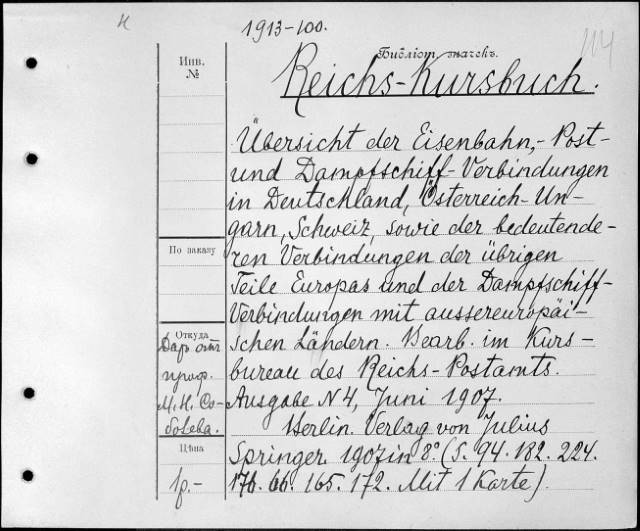 н 1913-100. 114
Библіот. значекъ.
Инв.
№
Reichs-Kursbuch.
Übersicht der Eisenbahn,- Post-
und Dampfschiff-Verbindungen
in Deutschland, Österreich-Un-
garn, Schweiz, sowie der bedeutende-
ren Verbindungen der übrigen
Teile Europas und der Dampfschiff-
Verbindungen mit aussereuropäi-
schen Ländern. Bearb. im Kurs-
bureau des Reichs-Postamts.
Ausgabe N 4, Juni 1907.
Berlin. Verlag von Julius
Springer 1907 in 8° (S. 94. 182. 224.
176. 66. 165. 172. Mit 1 Karte).
По заказу
Откуда
Даръ отъ
проф.
М. Н. Со-
болева.
Цѣна
1р.-